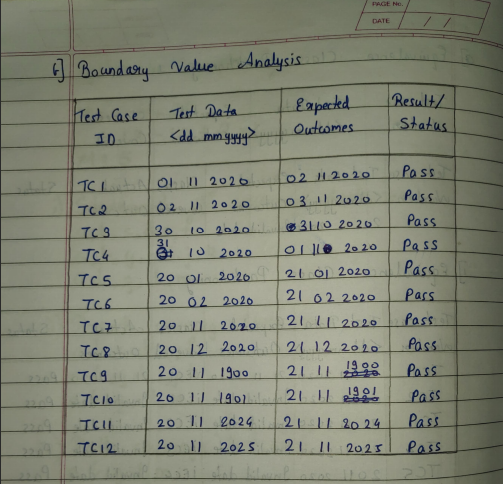 PAGE No.
DATE / /
6] Boundary Value Analysis
Test Case ID Test Data <dd mm yyyy> Expected Outcomes Result/ Status
TC1 01 11 2020 02 11 2020 Pass
TC2 02 11 2020 03 11 2020 Pass
TC3 30 10 2020 31 10 2020 Pass
TC4 31 10 2020 01 11 2020 Pass
TC5 20 01 2020 21 01 2020 Pass
TC6 20 02 2020 21 02 2020 Pass
TC7 20 11 2020 21 11 2020 Pass
TC8 20 12 2020 21 12 2020 Pass
TC9 20 11 1900 21 11 1900 Pass
TC10 20 11 1901 21 11 1901 Pass
TC11 20 11 2024 21 11 2024 Pass
TC12 20 11 2025 21 11 2025 Pass